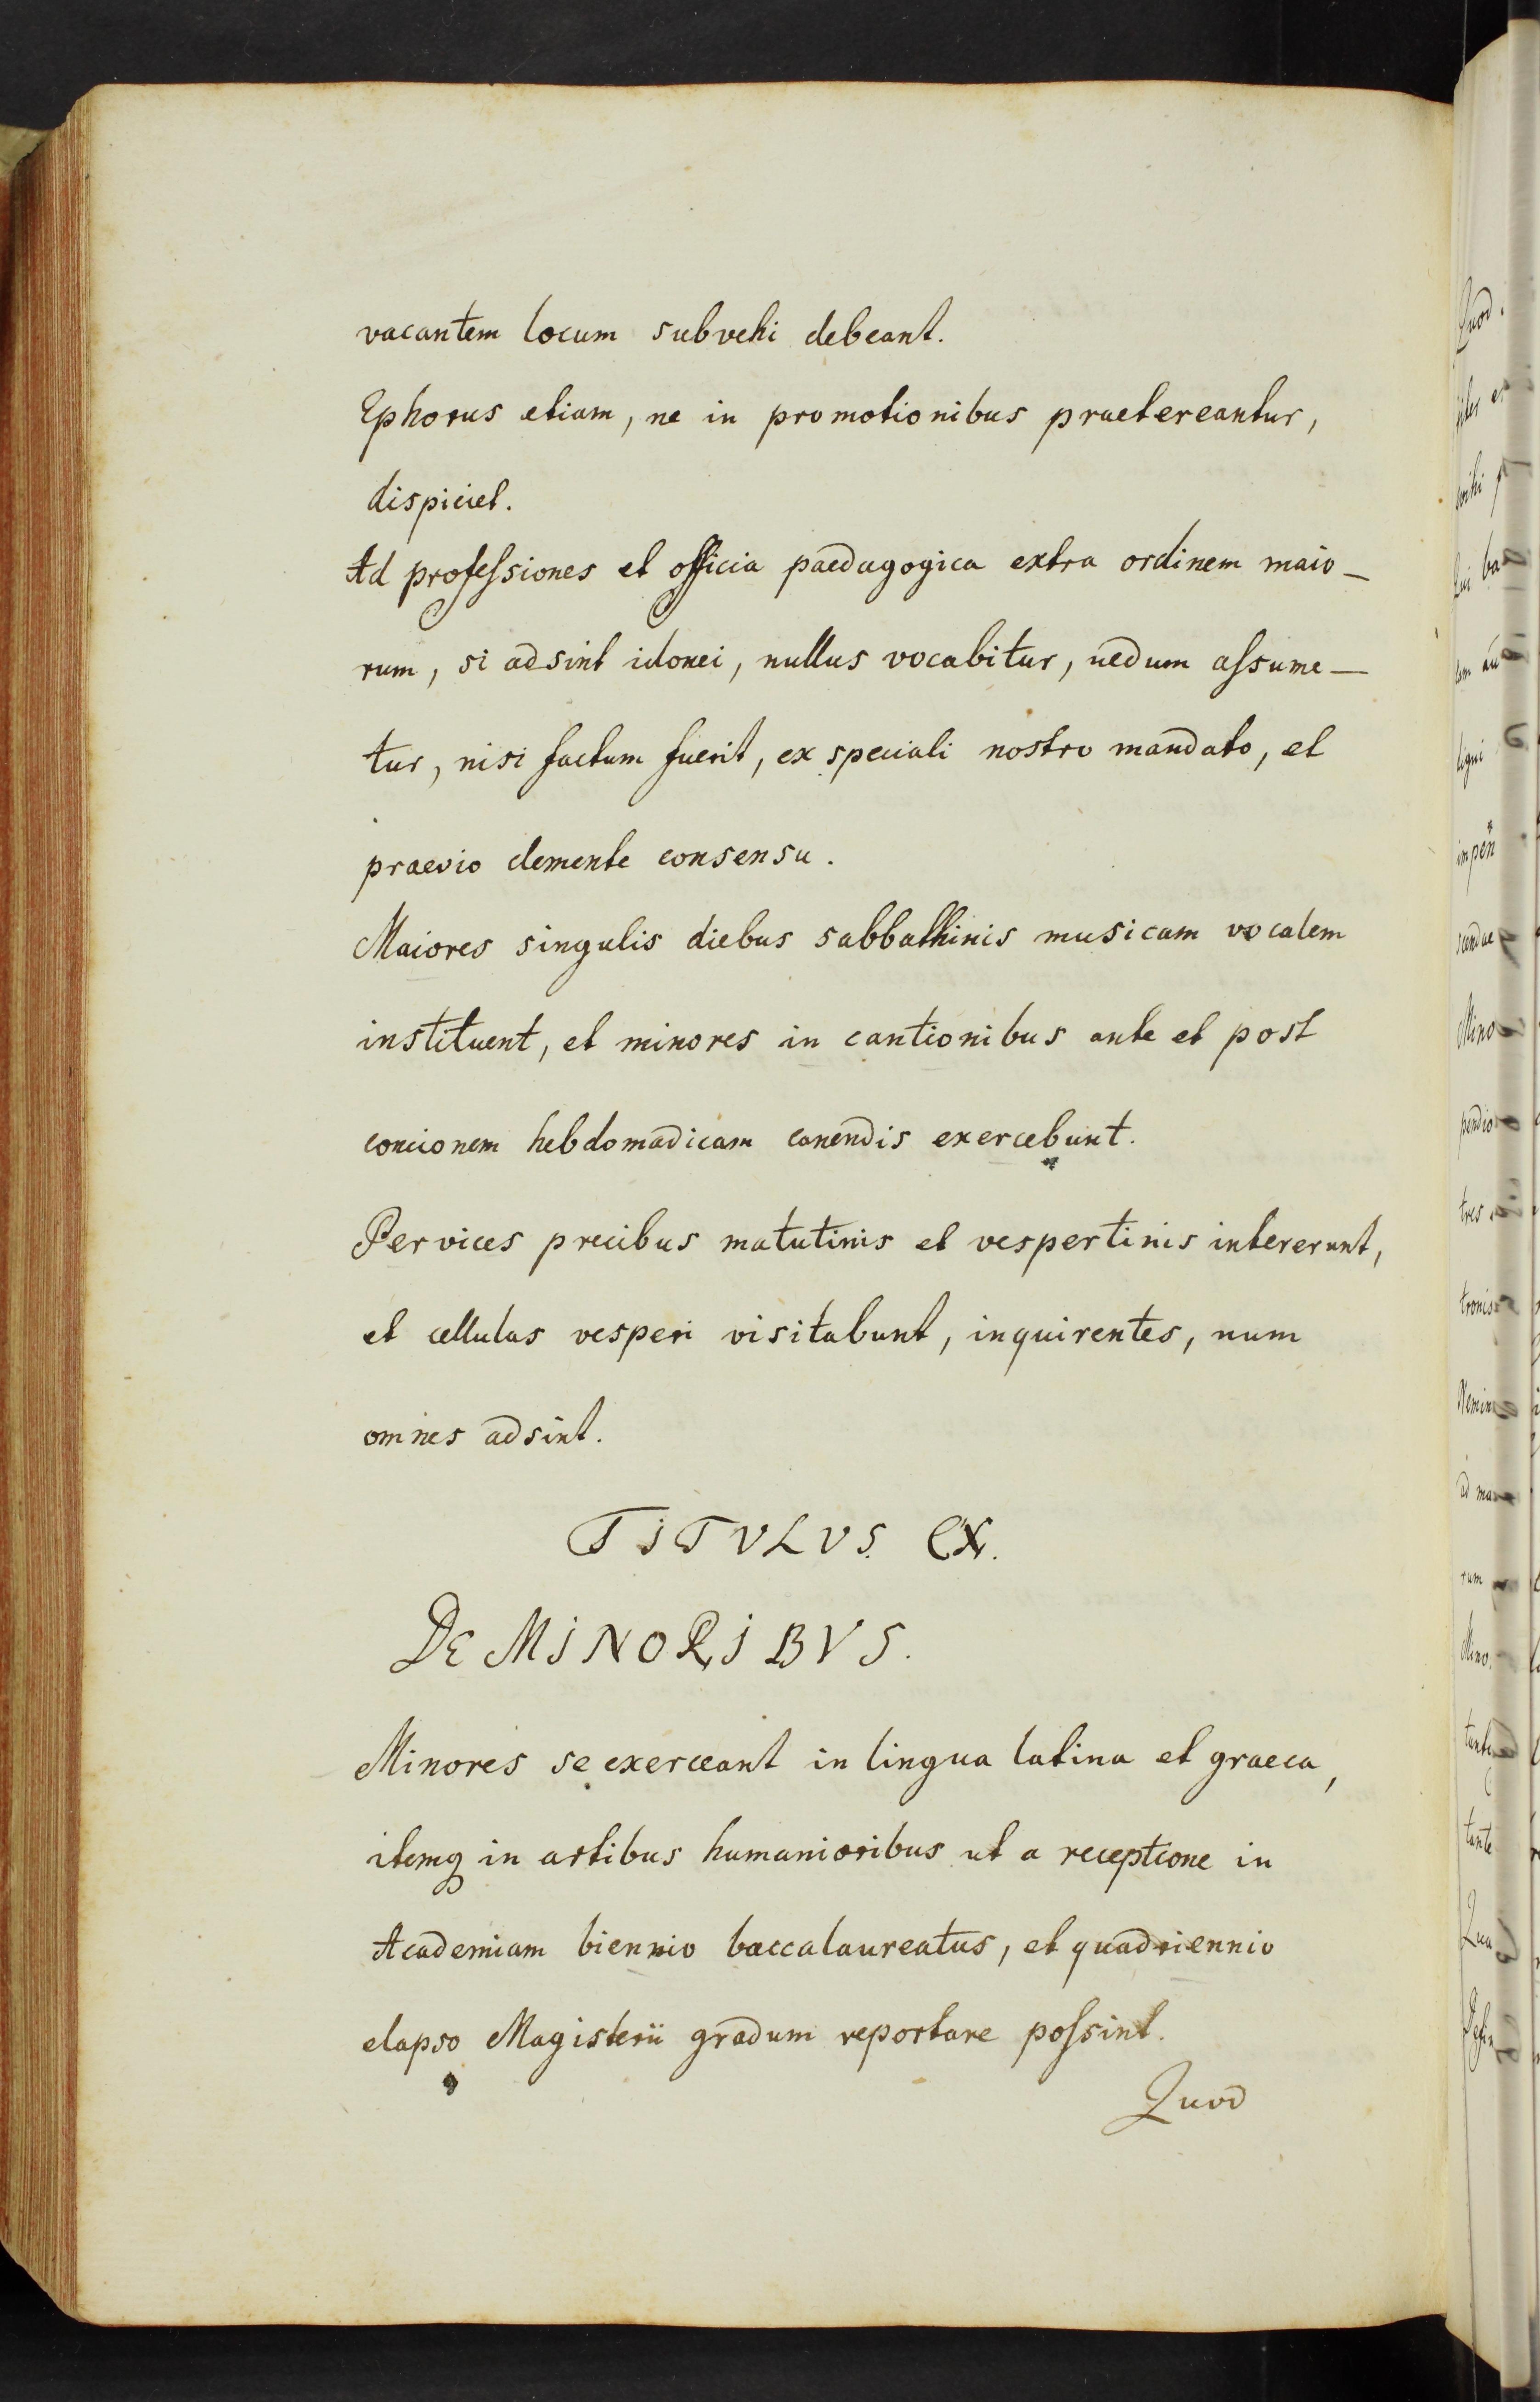 vacantem locum subvehi debeant.
Ephorus etiam, ne in promotionibus praetereantur,
dispiciet.
Ad profeſsiones et officia paedagogica extra ordinem maio-
rum, si adsint idonei, nullus vocabitur, nedum aſsume-
tur, nisi factum fuerit, ex speciali nostro mandato, et
praevio clemente consensu.
Maiores singulis diebus sabbathinis musicam vocalem
instituent, et minores in cantionibus ante et post
concionem hebdomadicam canendis exercebunt.
Per vices precibus matutinis et vespertinis intererunt,
et cellulas vesperi visitabunt, inquirentes, num
omnes adsint.
TITVLVS. IX.
DE MINORIBVS.
Minores se exerceant in lingua latina et graeca,
itemq in artibus humanioribus ut a receptione in
Academiam biennio baccalaureatus, et quadriennio
elapso Magisterii gradum reportare poſsint.
Quod